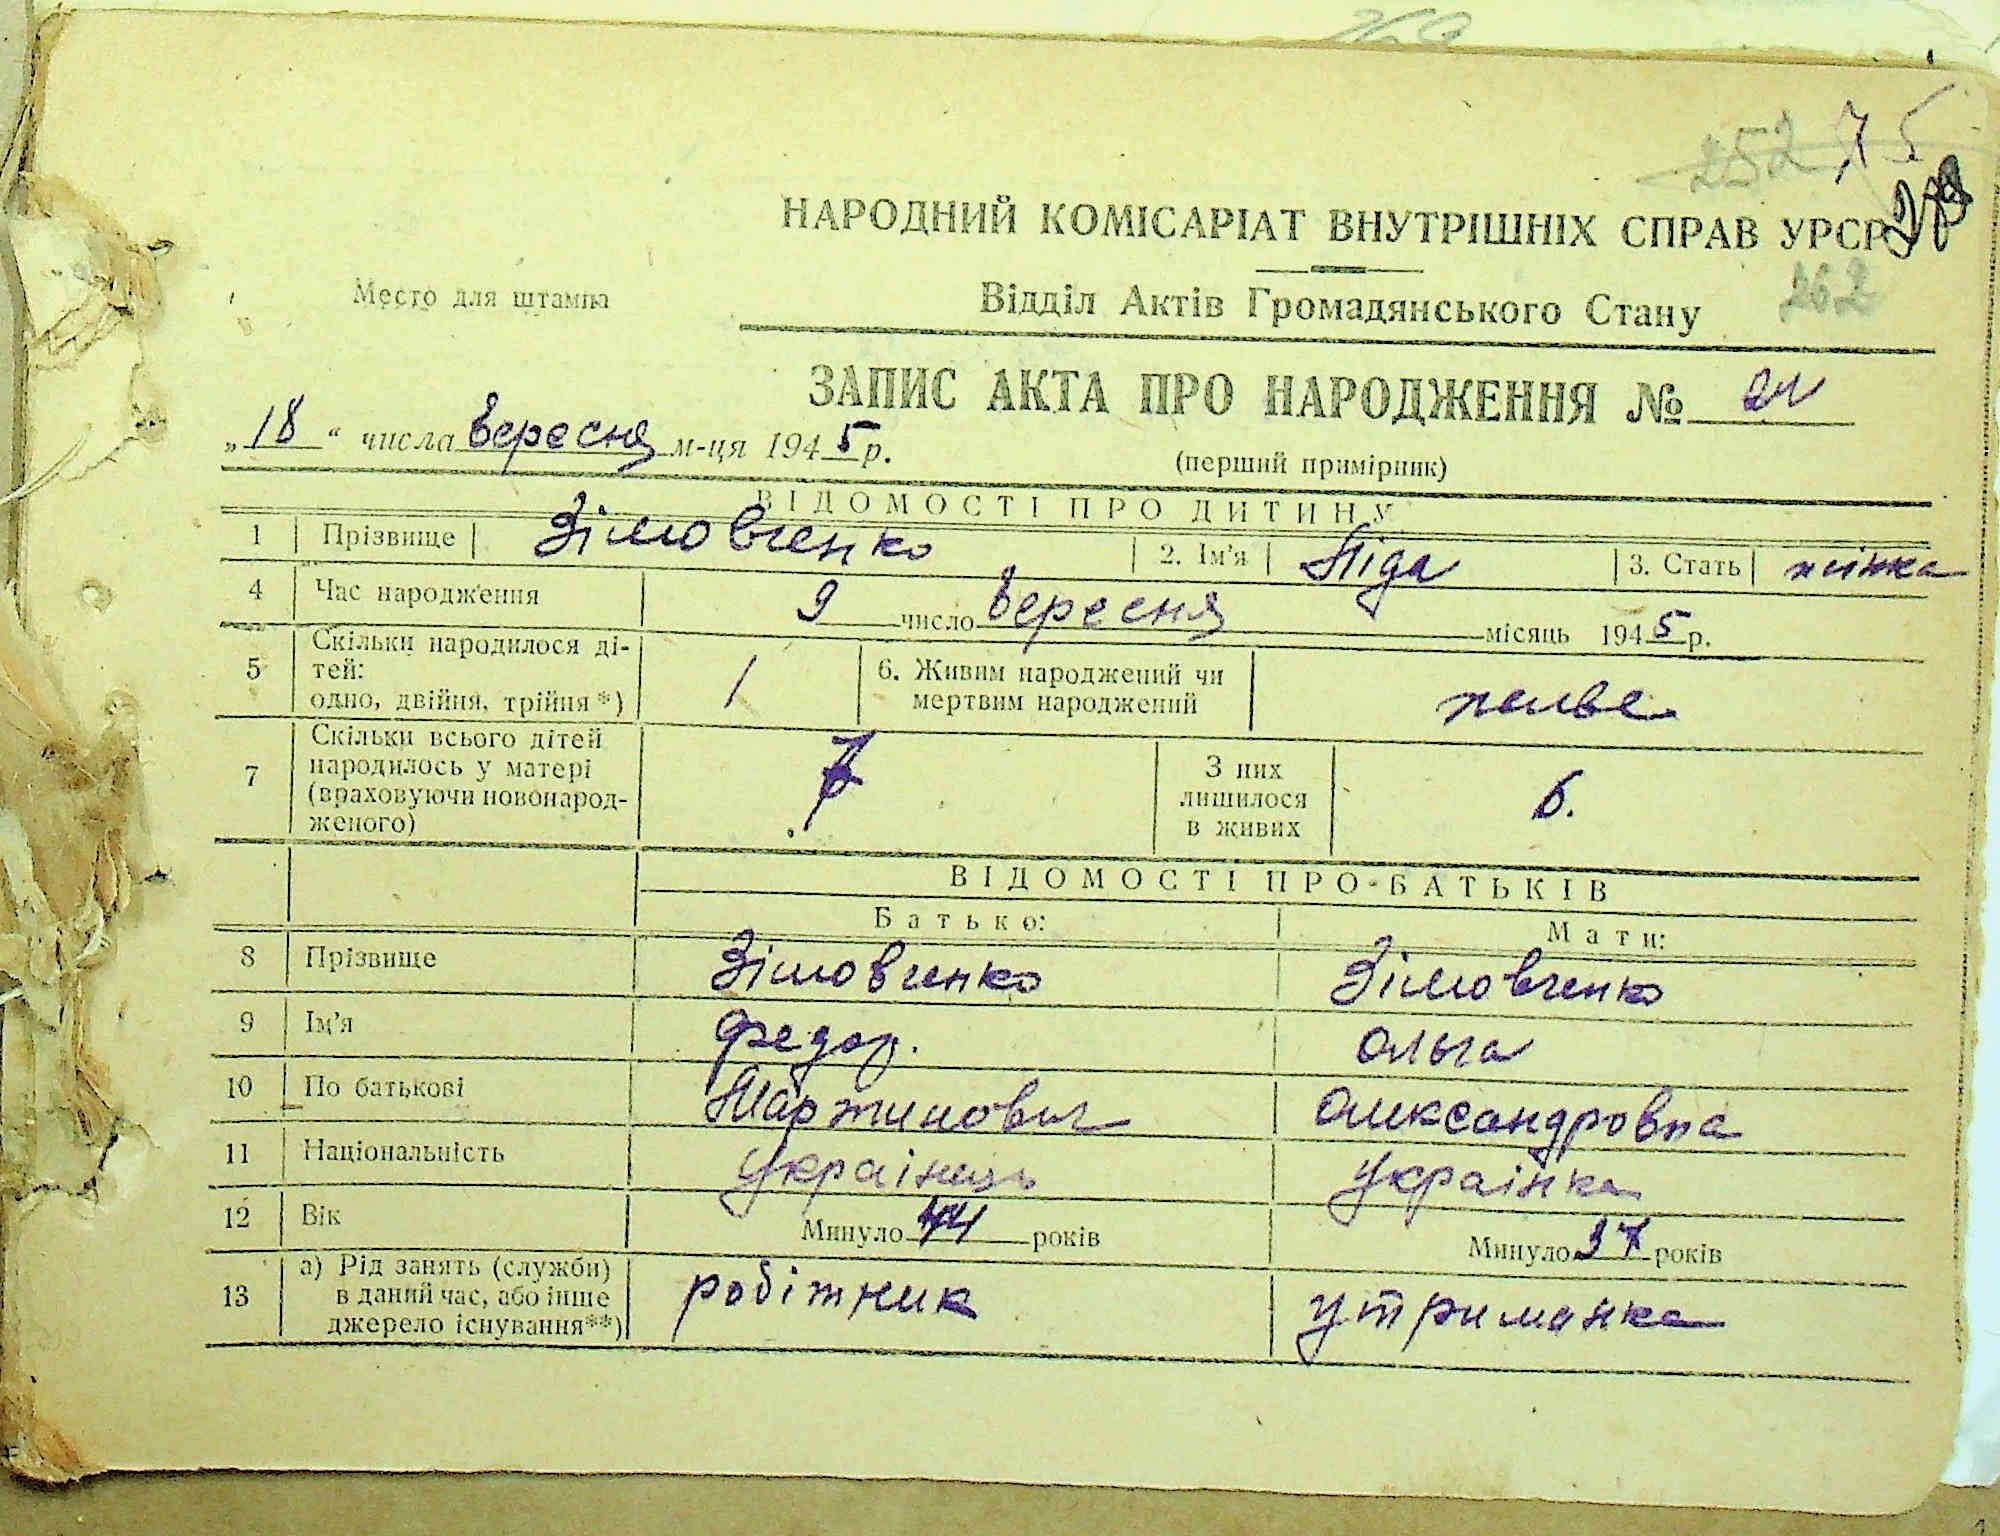 252 75
НАРОДНИЙ КОМІСАРІАТ ВНУТРІШНІХ СПРАВ УРСР
262
Место для штампа
Відділ Актів Громадянського Стану
ЗАПИС АКТА ПРО НАРОДЖЕННЯ №
„18“ числа вересня м-ця 1945 р.
(перший примірник)
ВІДОМОСТІ ПРО ДИТИНУ
1 Прізвище Зімовченко 2. Ім'я Ліда 3. Стать жінка
4 Час народження 9 число вересня місяць 1945 р.
5 Скільки народилося ді-
тей:
одно, двійня, трійня*) 1 6. Живим народжений чи
мертвим народжений живе
7 Скільки всього дітей
народилось у матері
(враховуючи новонарод-
женого) 7 З них
лишилося
в живих 6.
ВІДОМОСТІ ПРО БАТЬКІВ
Батько: Мати:
8 Прізвище Зімовченко Зімовченко
9 Ім'я Федор. Ольга
10 По батькові Мартинович Олександровна
11 Національність Українець Українка
12 Вік Минуло 44 років Минуло 37 років
13 а) Рід занять (служби)
в даний час, або інше
джерело існування**) робітник утриманка